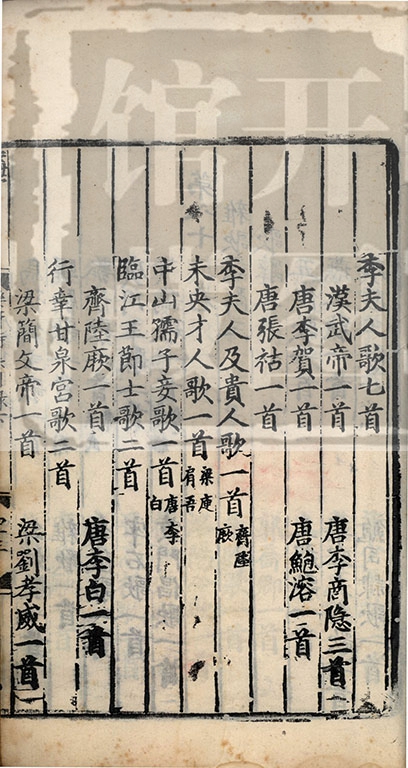 李夫人歌七首
漢武帝一首 唐李商隐三首
唐李賀一首 唐鮑溶一首
唐張祜一首
李夫人及貴人歌一首 齊陸厥
未央才人歌一首 梁庾肩吾
中山孺子妾歌一首 唐李白
臨江王節士歌二首
齊陸厥一首 唐李白一首
行幸甘泉宮歌二首
梁簡文帝一首 梁劉孝威一首
开
馆